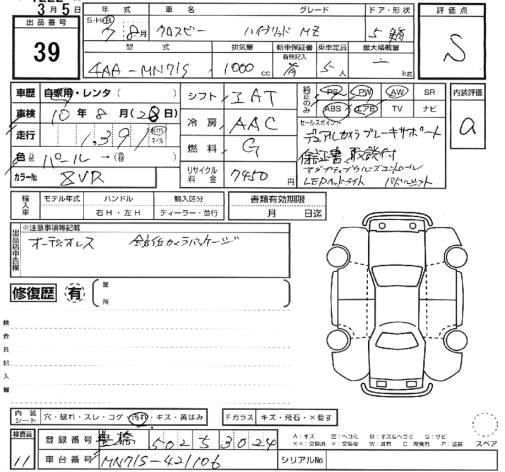 3月5日
出品番号
39
年式
車名
グレード
ドア・形状
評価点
S・H・R
7 8月
クロスビー
ハイブリッド MZ
5
S
型式
排気量
新車保証書
有無記入
乗車定員
最大積載量
4AA-MN71S
1000 cc
有
5人
kg
車歴 自家用・レンタ
シフト IAT
純正のみ
PS PW AW SR
ABS TV ナビ
内装評価
a
車検 10年8月(28日)
走行 1,391 km マイル
冷房 AAC
セールスポイント
デュアルカメラブレーキサポート
保証書 取説付
アダプティブクルーズコントロール
LEDヘッドライト パドルシフト
色 パール →
燃料 G
カラーNo. ZVR
リサイクル料金 7450
輸入車
モデル年式
ハンドル
右H・左H
輸入区分
ディーラー・並行
書類有効期限
月 日迄
出品店申告欄
※注意事項等記載
オーディオレス 全方位カメラパッケージ
修復歴 有
箇所
検査員記入欄
内装シート
穴・破れ・スレ・コゲ・汚れ・キズ・黄ばみ
Fガラス キズ・飛石・×要す
スペア
検査員
11
登録番号 豊橋 502 53024
車台番号 MN71S-421106
シリアルNo.
A:キズ U:ヘコミ B:キズ&ヘコミ S:サビ